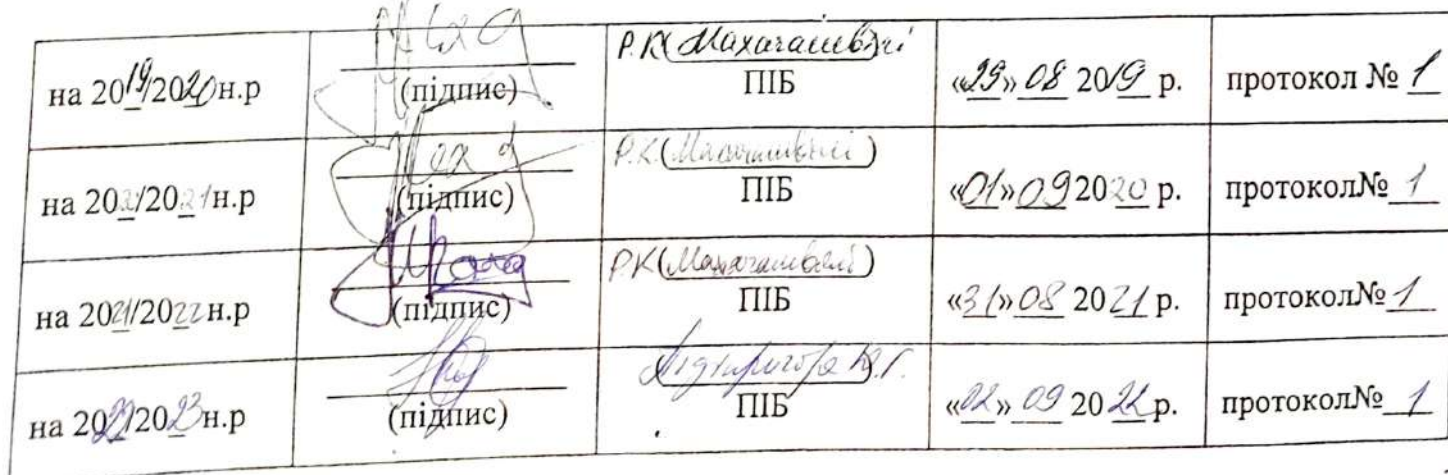 на 2019/2020 н.р (підпис) Р.К (Махачашвілі) ПІБ «29» 08 2019 р. протокол № 1
на 2020/2021 н.р (підпис) Р.К. (Махачашвілі) ПІБ «01» 09 2020 р. протокол№ 1
на 2021/2022 н.р (підпис) Р.К (Махачашвілі) ПІБ «31» 08 2021 р. протокол№ 1
на 2022/2023 н.р (підпис) ПІБ «02» 09 2022 р. протокол№ 1